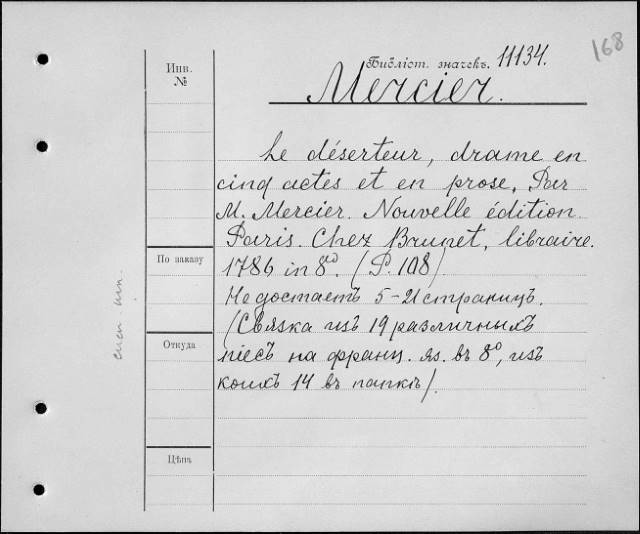 168
Библіот. значекъ. 11134.
Инв.
№
Mercier.
Le déserteur, drame en
cinq actes et en prose, Par
M. Mercier. Nouvelle édition.
Paris. Chez Brunet, libraire.
По заказу
1786 in 8º. (P. 108)
Недостаетъ 5-21 страницъ.
(Связка изъ 19 различныхъ
Откуда
піесъ на франц. яз. въ 8º, изъ
коихъ 14 въ папкѣ).
Цѣна